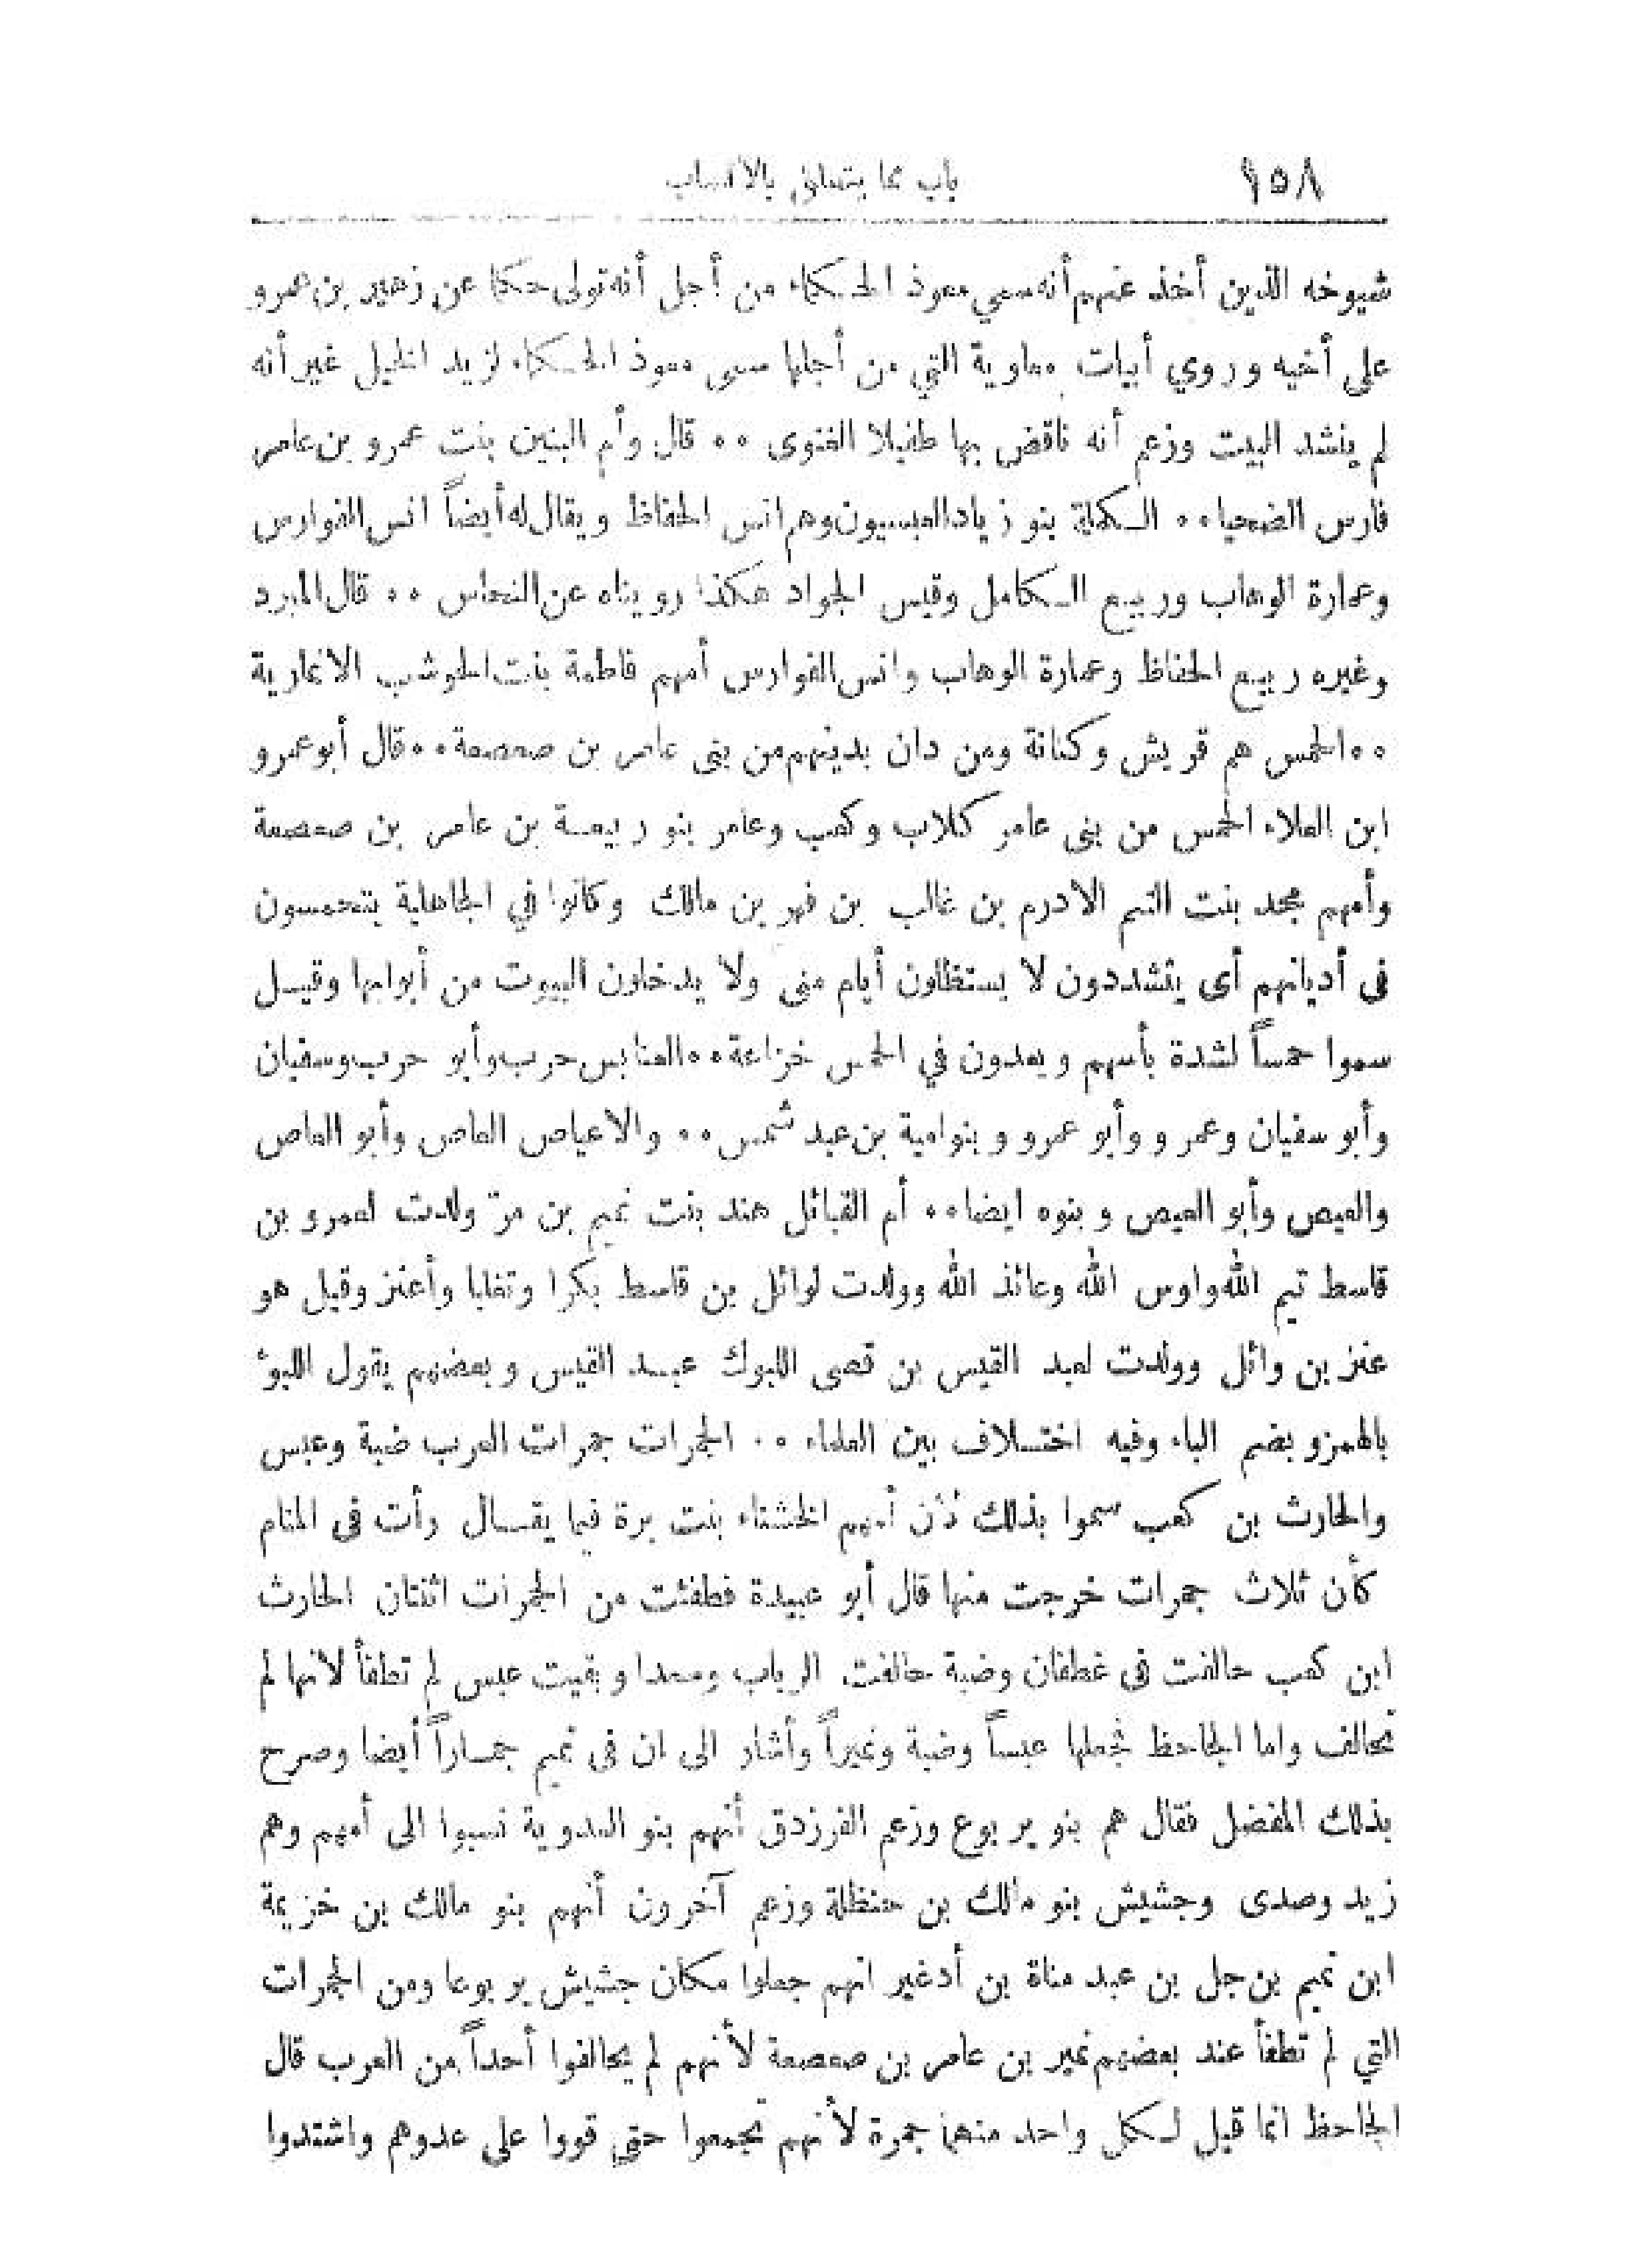 ١٥٨ باب مما يتعلق بالأنساب
شيوخه الذين أخذ عنهم أنه سمي معوذ الحكاء من أجل أنه تولى حكما عن زهير بن عمرو
على أخيه وروي أبيات معاوية التي من أجلها سمى معوذ الحكاء لزيد الخيل غير أنه
لم ينشد البيت وزعم أنه ناقض بها طفيلا الغنوى ٠٠ قال وأم البنين بنت عمرو بن عامر
فارس الضحياء ٠٠ الكملة بنو زياد العبسيون وهم انس الحفاظ ويقال له أيضاً انس الفوارس
وعمارة الوهاب وربيع الكامل وقيس الجواد هكذا رويناه عن النحاس ٠٠ قال المبرد
وغيره ربيع الحفاظ وعمارة الوهاب وانس الفوارس أمهم فاطمة بنت الخوشب الانمارية
٠٠ الحمس هم قريش وكنانة ومن دان بدينهم من بنى عامر بن صعصعة ٠٠ قال أبو عمرو
ابن العلاء الحمس من بنى عامر كلاب وكعب وعامر بنو ربيعة بن عامر بن صعصعة
وأمهم مجد بنت التيم الادرم بن غالب بن فهر بن مالك وكانوا في الجاهلية يتحمسون
فى أديانهم أى يتشددون لا يستظلون أيام منى ولا يدخلون البيوت من أبوابها وقيل
سموا حمساً لشدة بأسهم ويعدون في الحمس خزاعة ٠٠ العنابس حرب وأبو حرب وسفيان
وأبو سفيان وعمرو وأبو عمرو وبنو امية بن عبد شمس ٠٠ والاعياص العاص وأبو العاص
والعيص وأبو العيص وبنوه ايضا ٠٠ أم القبائل هند بنت تميم بن مرّ ولدت لعمرو بن
قاسط تيم الله واوس الله وعائذ الله وولدت لوائل بن قاسط بكرا وتغلبا وأعنز وقيل هو
عنز بن وائل وولدت لعبد القيس بن قصى اللبوك عبد القيس وبعضهم يقول اللبؤ
بالهمز وبضم الباء وفيه اختلاف بين العلماء ٠٠ الجمرات جمرات العرب ضبة وعبس
والحارث بن كعب سموا بذلك لأن أمهم الخشناء بنت برة فيما يقال رأت فى المنام
كأن ثلاث جمرات خرجت منها قال أبو عبيدة فطفئت من الجمرات اثنتان الحارث
ابن كعب حالفت فى غطفان وضبة حالفت الرباب وسعدا وبقيت عبس لم تطفأ لانها لم
تحالف واما الجاحظ فجعلها عبساً وضبة ونميراً وأشار الى ان فى تميم جماراً أيضا وصرح
بذلك المفضل فقال هم بنو يربوع وزعم الفرزدق أنهم بنو العدوية نسبوا الى أمهم وهم
زيد وصدى وجشيش بنو مالك بن حنظلة وزعم آخرون أنهم بنو مالك بن خزيمة
ابن تميم بن جل بن عبد مناة بن أد غير انهم جعلوا مكان جشيش يربوعا ومن الجمرات
التي لم تطفأ عند بعضهم نمير بن عامر بن صعصعة لأنهم لم يحالفوا أحداً من العرب قال
الجاحظ انما قيل لكل واحد منهما جمرة لأنهم تجمعوا حتى قووا على عدوهم واشتدوا